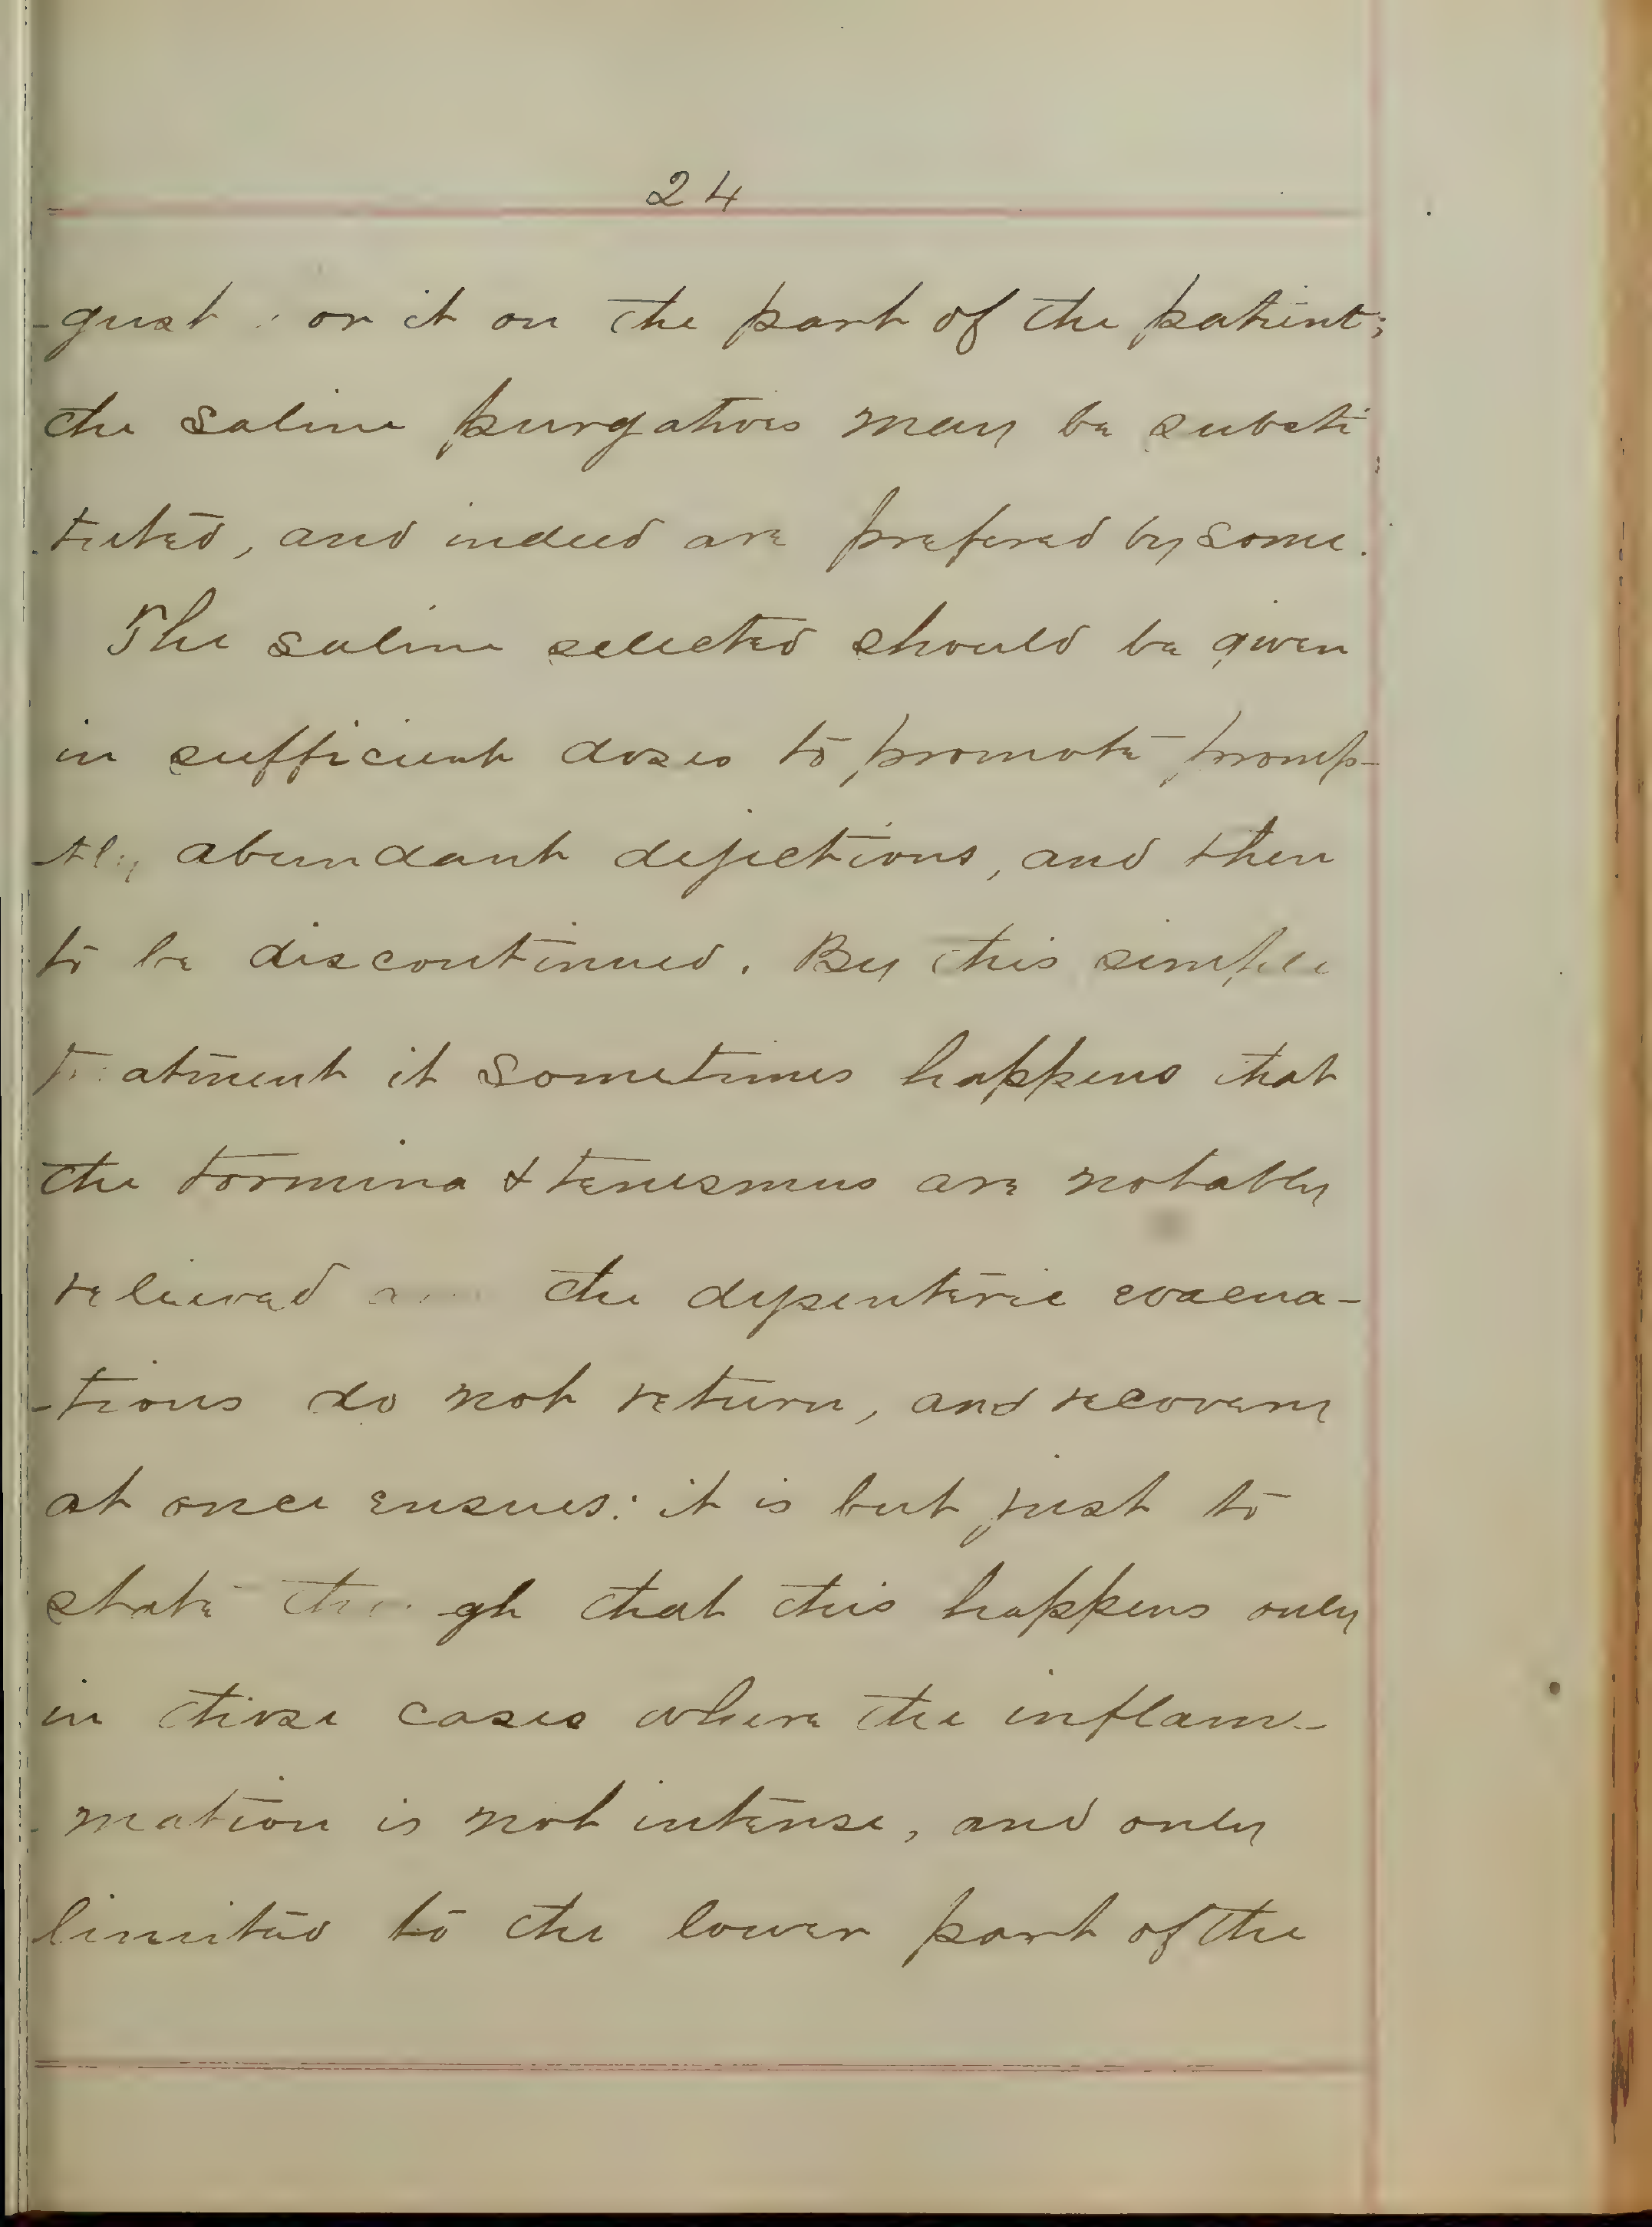 24
-gust for it on the part of the patient;
the saline purgatives may be substi
tuted, and indeed are prefered by some.
The saline selected should be given
in sufficient doses to promote promp-
-tly abundant dejections, and then
to be discontinued. By this simple
treatment it sometimes happens that
the tormina & tenesmus are notably
relieved and the dysenteric evacua-
-tions do not return, and recovery
at once ensues: it is but just to
state though that this happens only
in those cases where the inflam-
-mation is not intense, and only
limited to the lower part of the